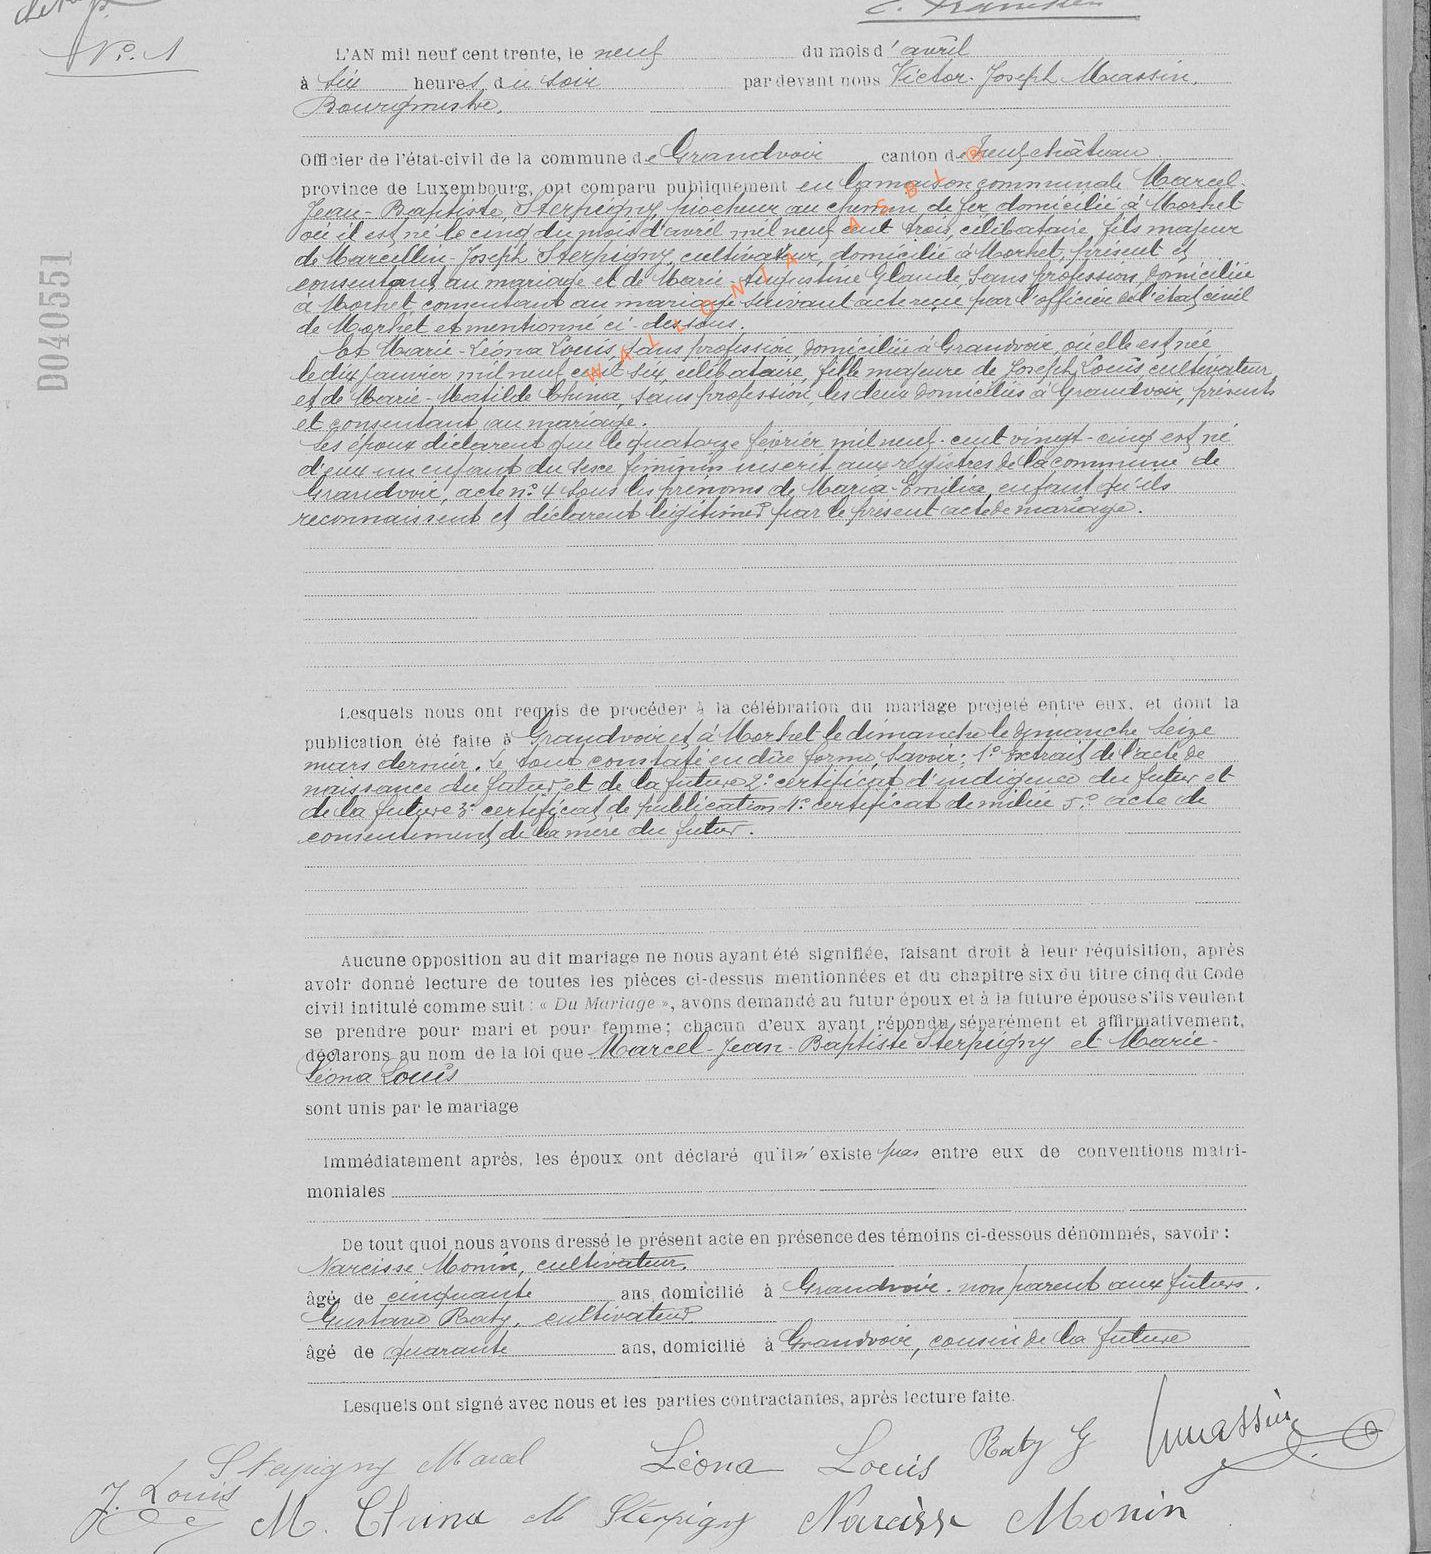 No. 1
L'AN mil neuf cent trente, le neuf du mois d'avril
à six heures du soir par devant nous Victor-Joseph Massin,
Bourgmestre,
Officier de l'état-civil de la commune de Grandvoir canton de Neufchâteau
province de Luxembourg, ont comparu publiquement en la maison communale Marcel-
Jean-Baptiste Sterpigny, piocheur au chemin de fer, domicilié à Morhet
où il est né le cinq du mois d'avril mil neuf cent trois, célibataire, fils majeur
de Marcellin-Joseph Sterpigny, cultivateur, domicilié à Morhet, présent et
consentant au mariage et de Marie-Augustine Glaude, sans profession, domiciliée
à Morhet, consentant au mariage suivant acte reçu par l'officier de l'état civil
de Morhet et mentionné ci-dessous.
Et Marie-Léona Louis, sans profession, domiciliée à Grandvoir, où elle est née
le dix janvier mil neuf cent six, célibataire, fille majeure de Joseph Louis, cultivateur,
et de Marie-Matilde China, sans profession, les deux domiciliés à Grandvoir, présents
et consentant au mariage.
Les époux déclarent que le quatorze février mil neuf-cent vingt-cinq est né
d'eux un enfant du sexe féminin inscrit aux registres de la commune de
Grandvoir, acte n° 4 sous les prénoms de Maria-Emilia, enfant qu'ils
reconnaissent et déclarent légitimer par le présent acte de mariage.
Lesquels nous ont requis de procéder à la célébration du mariage projeté entre eux, et dont la
publication été faite à Grandvoir et à Morhet le dimanche le dimanche seize
mars dernier. Le tout constaté en due forme, savoir: 1° extrait de l'acte de
naissance du futur et de la future 2° certificat d'indigence du futur et
de la future 3° certificat de publication 4° certificat de milice 5° acte de
consentement de la mère du futur.
Aucune opposition au dit mariage ne nous ayant été signifiée, faisant droit à leur réquisition, après
avoir donné lecture de toutes les pièces ci-dessus mentionnées et du chapitre six du titre cinq du Code
civil intitulé comme suit : « Du Mariage », avons demandé au futur époux et à la future épouse s'ils veulent
se prendre pour mari et pour femme; chacun d'eux ayant répondu séparément et affirmativement,
déclarons au nom de la loi que Marcel-Jean-Baptiste Sterpigny et Marie-
Léona Louis
sont unis par le mariage
Immédiatement après, les époux ont déclaré qu'il n'existe pas entre eux de conventions matri-
moniales
De tout quoi nous avons dressé le présent acte en présence des témoins ci-dessous dénommés, savoir :
Narcisse Monin, cultivateur,
âgé de cinquante ans, domicilié à Grandvoir, non parent aux futurs.
Gustave Raty, cultivateur
âgé de quarante ans, domicilié à Grandvoir, cousin de la future
Lesquels ont signé avec nous et les parties contractantes, après lecture faite.
Sterpigny Marcel Léona Louis Raty G Vmassin
J. Louis M. China M Sterpigny Narcisse Monin
D040551
WALLONIA ASBL ©